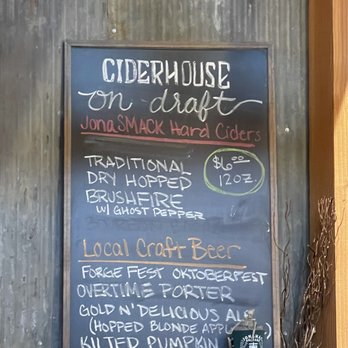 CIDERHOUSE
on draft
JonaSMACK Hard Ciders
TRADITIONAL
DRY HOPPED
BRUSHFIRE
W/ GHOST PEPPER
$6.00
12oz.
Local Craft Beer
FORGE FEST OKTOBERFEST
OVERTIME PORTER
GOLD N' DELICIOUS ALE
(HOPPED BLONDE
KILTED PUMPKIN